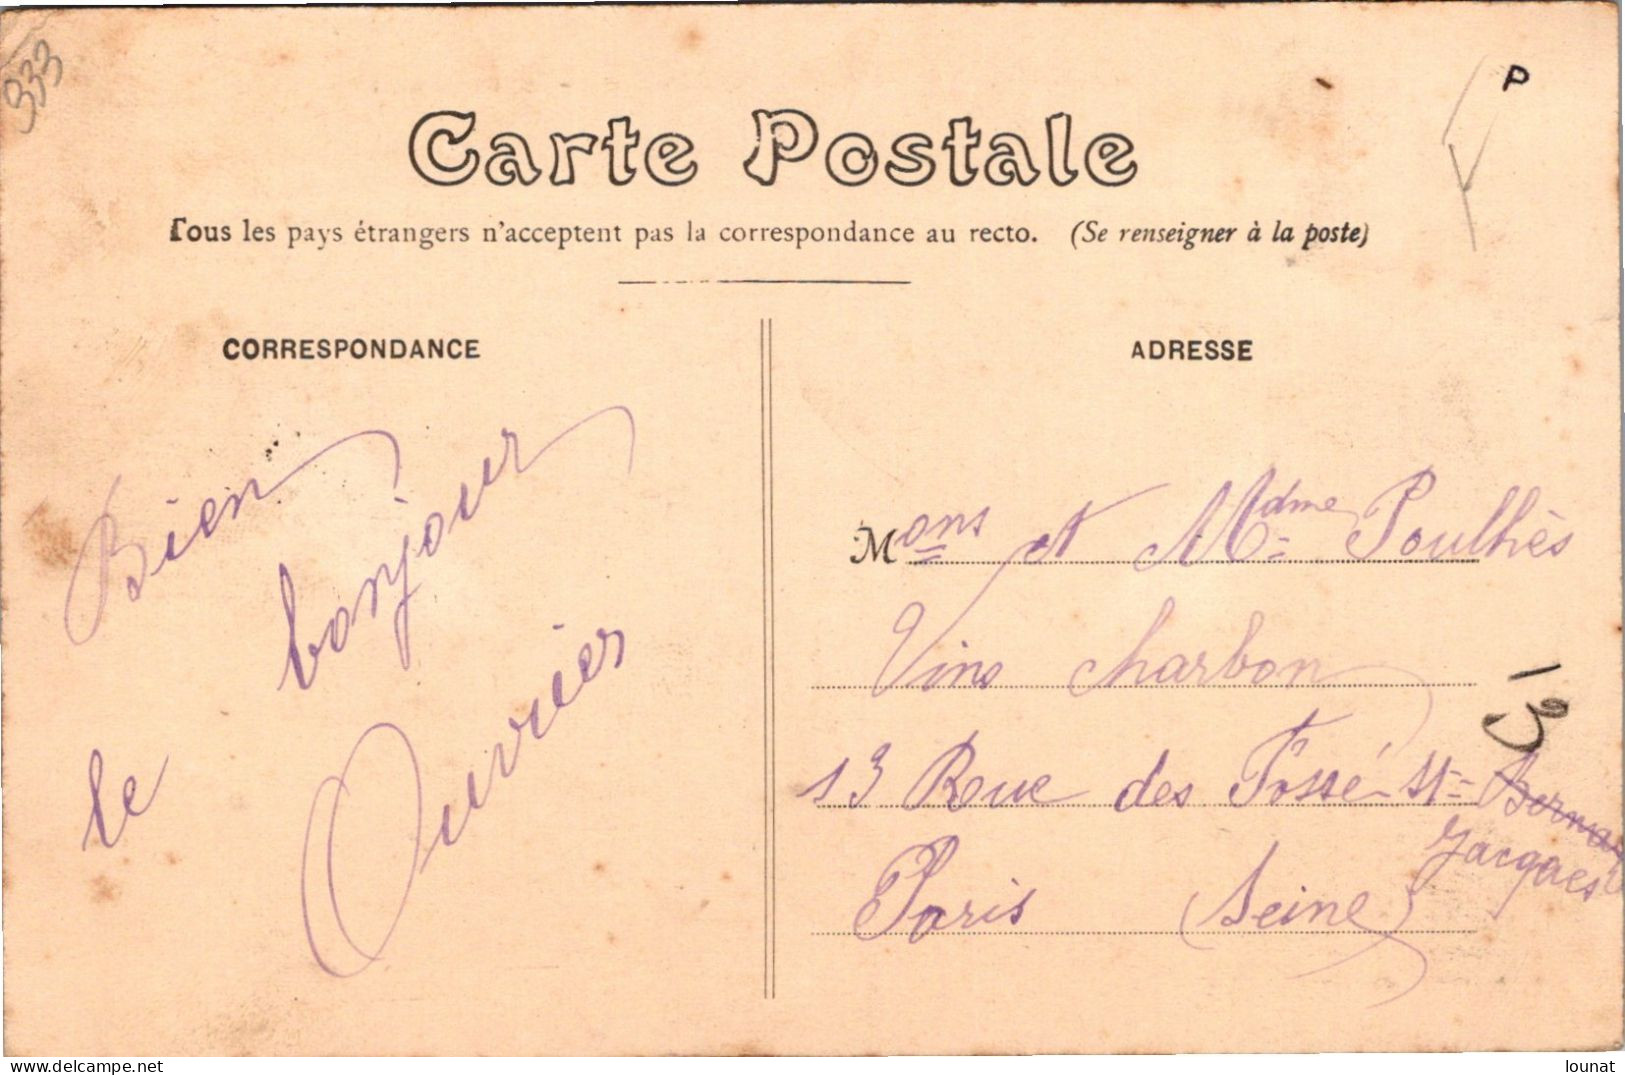 333
P
Carte Postale
Tous les pays étrangers n'acceptent pas la correspondance au recto. (Se renseigner à la poste)
CORRESPONDANCE
Bien
le bonjour
Ouvrier
ADRESSE
Mons et Mdme Poulhès
Vins Charbon
13 Rue des Fossé St= Bernar
Jacques
Paris (Seine)
delcampe.net
lounat